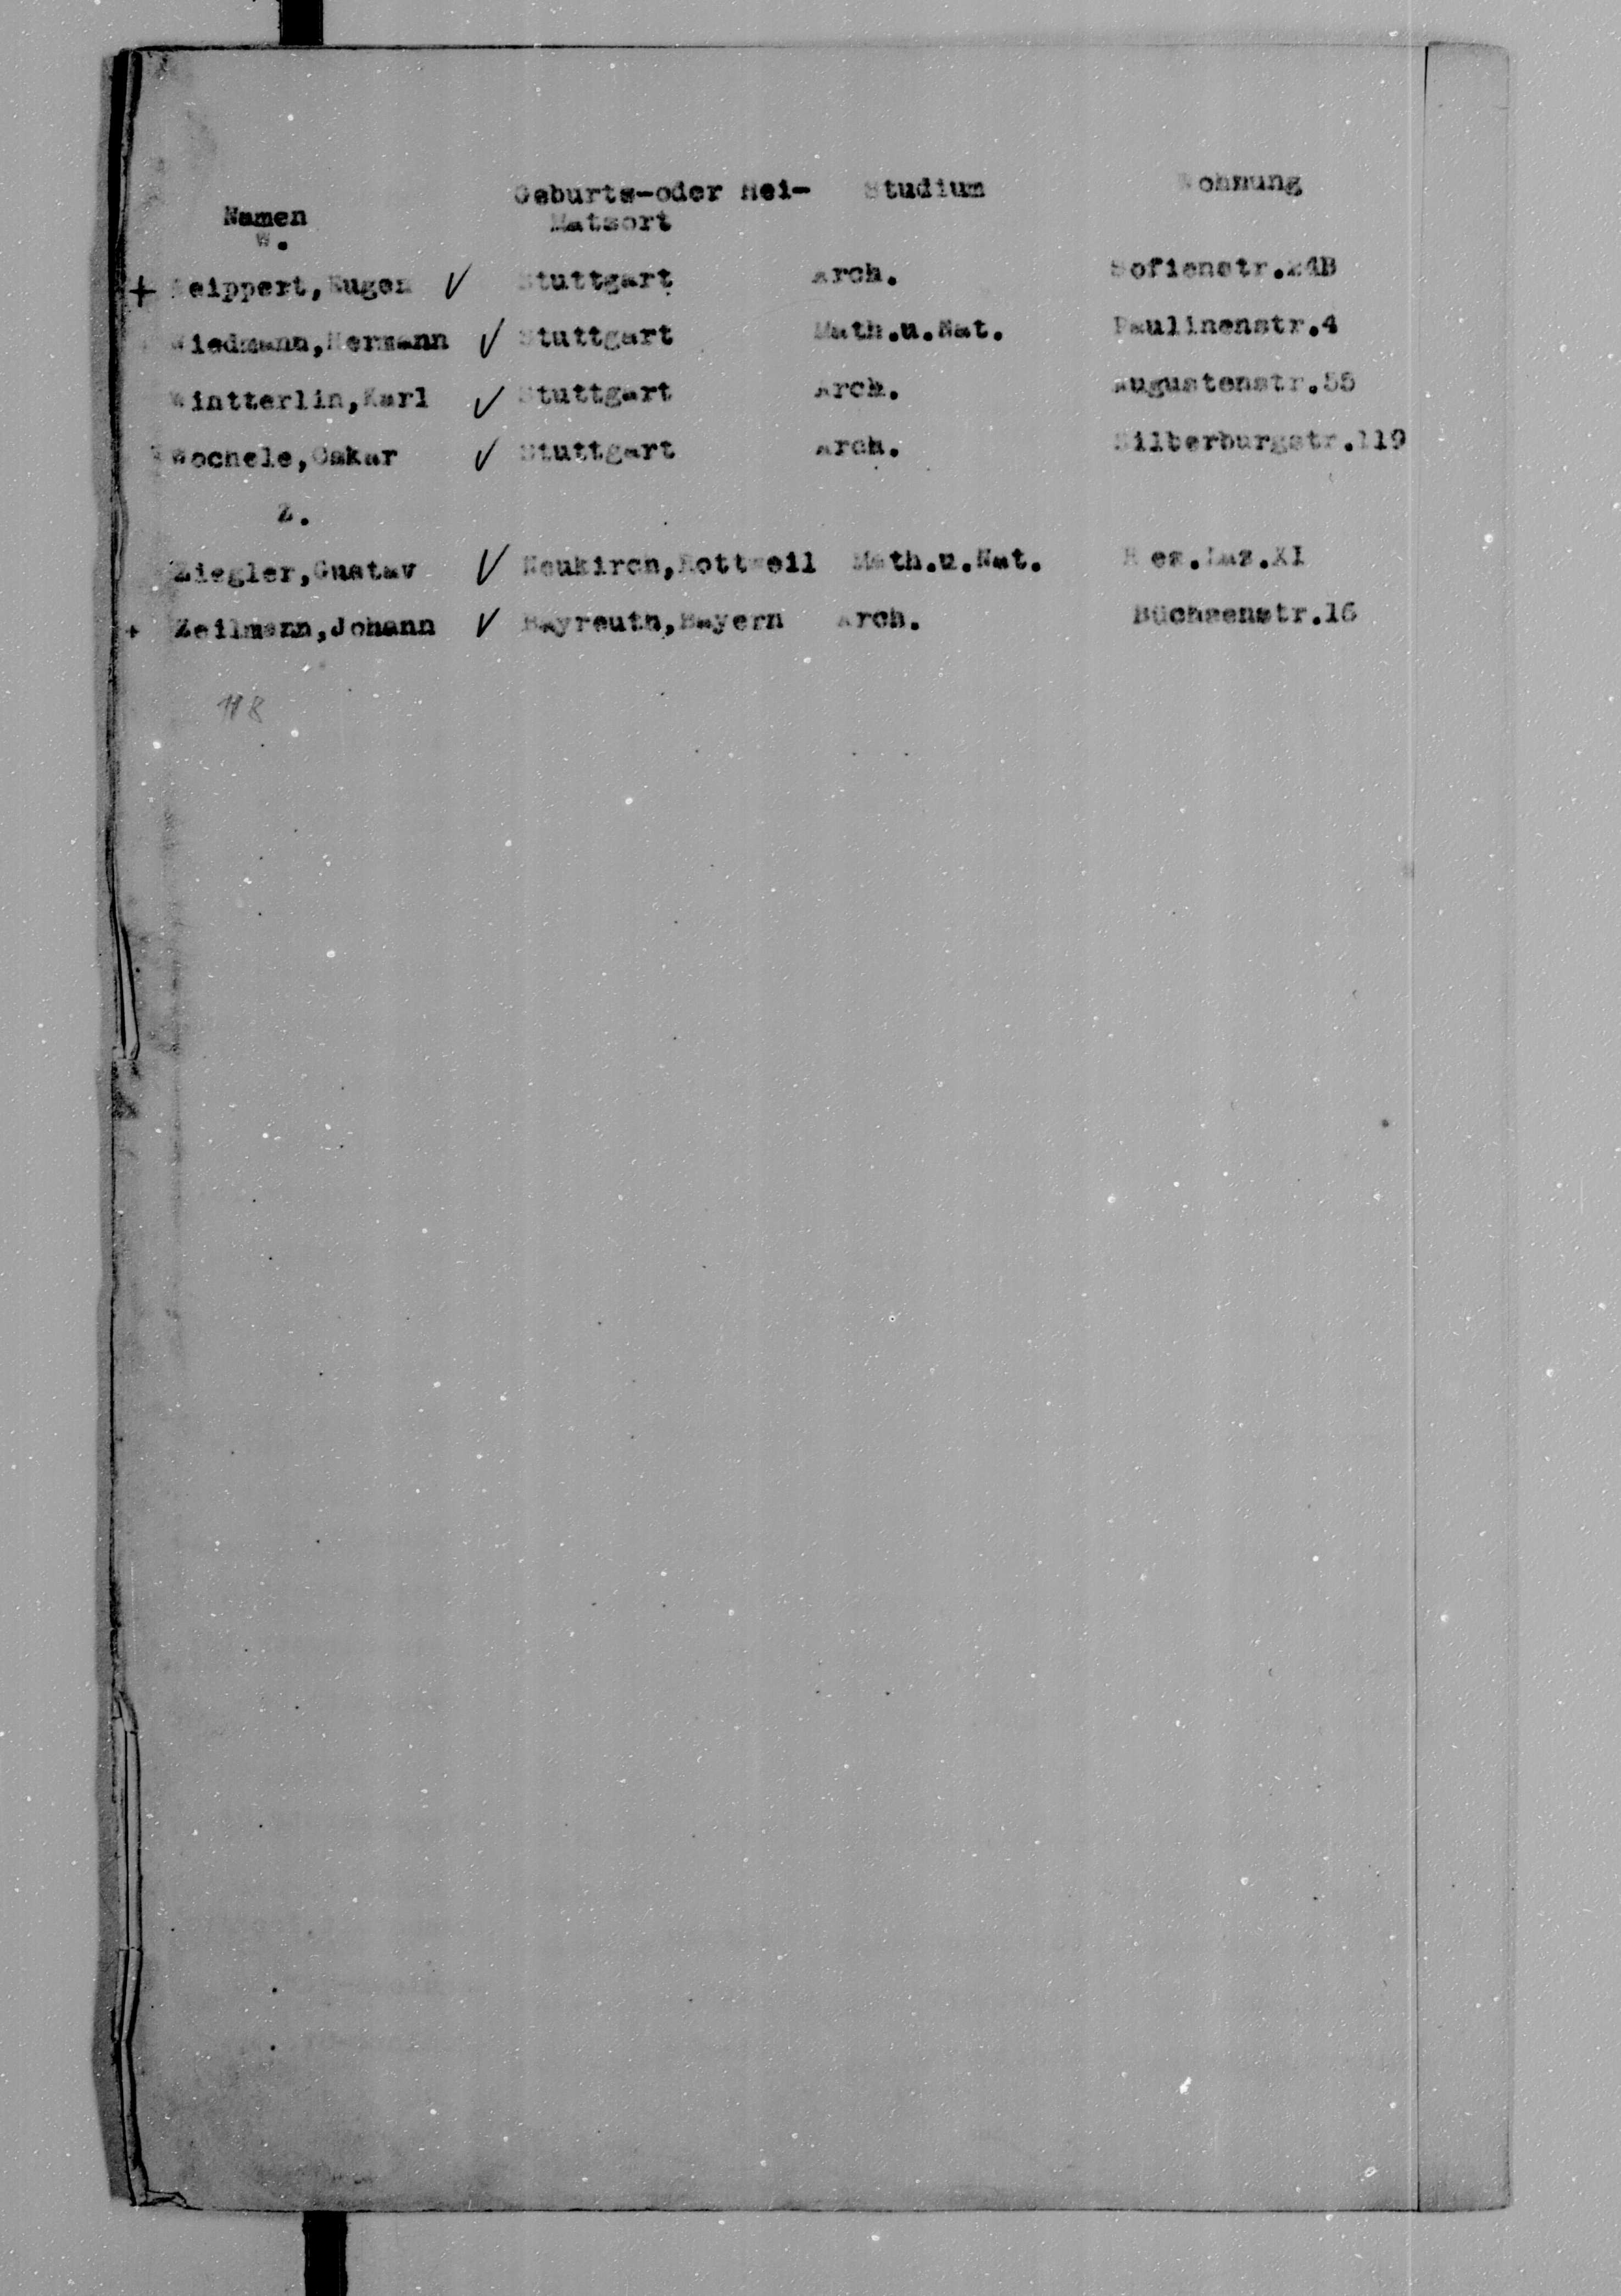 Namen Geburts-oder Hei- Studium Wohnung
Matsort
W.
+ Weippert,Eugen √ Stuttgart Arch. Sofienstr.24B
Wiedmann,Hermann √ Stuttgart Math.u.Nat. Paulinenstr.4
Wintterlin,Karl √ Stuttgart Arch. Augustenstr.55
Wochele,Oskar √ Stuttgart Arch. Silberburgstr.119
Z.
Ziegler,Gustav √ Neukirch,Rottweil Math.u.Nat. Res.Laz.XI
+ Zeilmann,Johann √ Bayreuth,Bayern Arch. Büchsenstr.16
118